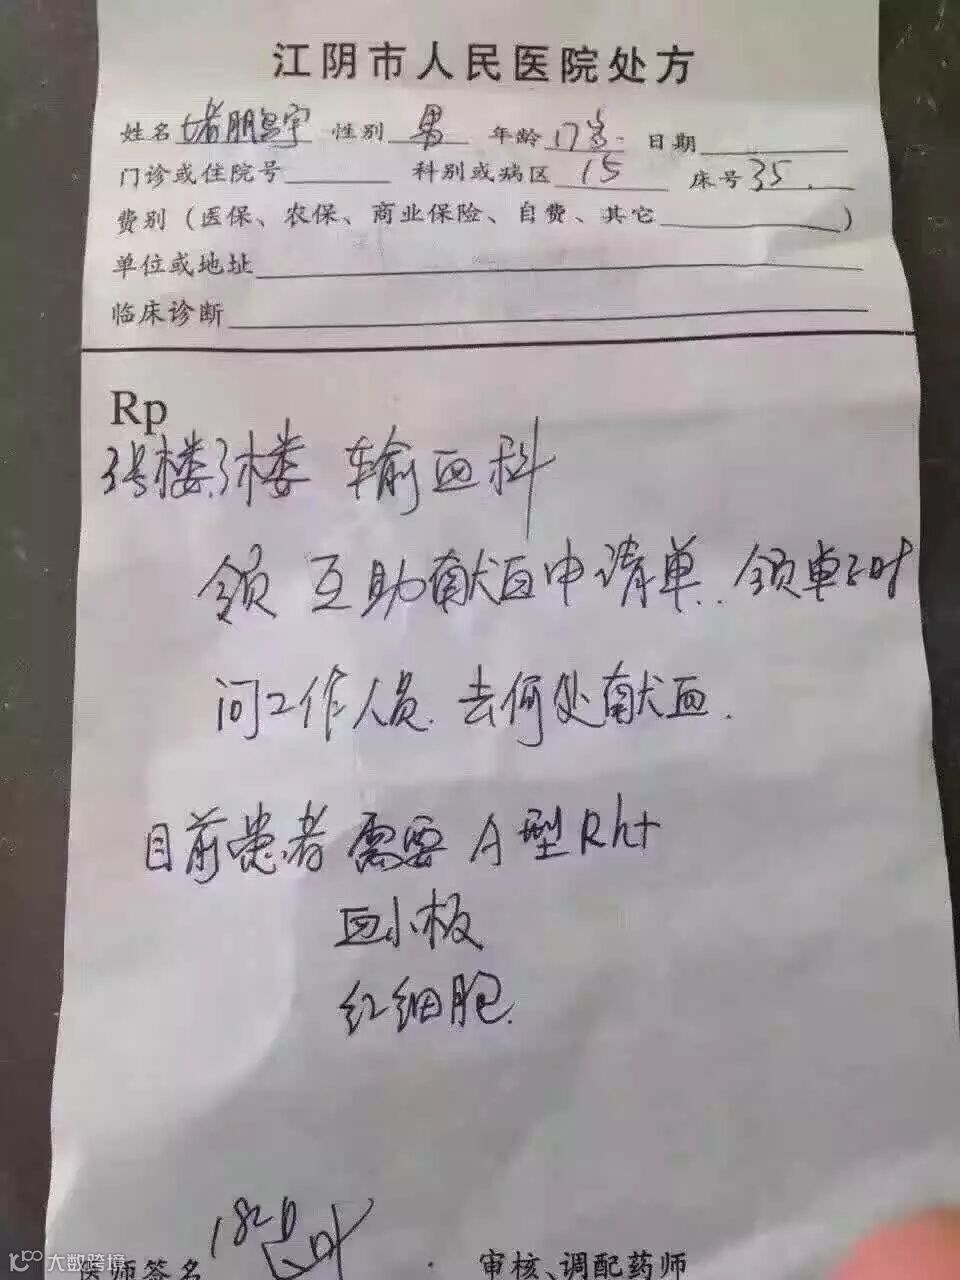 江阴市人民医院处方
姓名 堵朋宇 性别 男 年龄 17岁 日期
门诊或住院号 科别或病区 15 床号 35.
费别（医保、农保、商业保险、自费、其它 ）
单位或地址
临床诊断
Rp
3号楼.3楼 输血科
领 互助献血申请单. 领单时
问工作人员. 去何处献血.
目前患者 需要 A型Rh+
血小板
红细胞.
医师签名 审核、调配药师
大数跨境